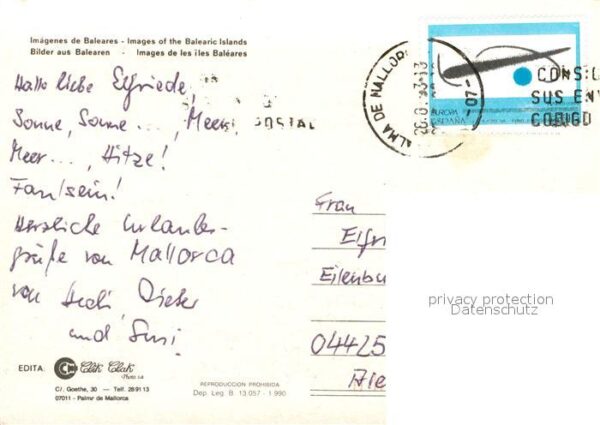 Imágenes de Baleares - Images of the Balearic Islands
Bilder aus Balearen - Images de les îles Baléares
Hallo liebe Elfriede,
Sonne, Sonne..., Meer,
Meer..., Hitze!
Faulsein!
Herzliche Urlauber-
grüße von Mallorca
von Heidi, Dieter
und Susi!
EDITA:
Clik Clak
Photo s.a.
C/. Goethe, 30 — Telf. 28 91 13
07011 - Palma de Mallorca
REPRODUCCION PROHIBIDA
Dep. Leg. B. 13.057 - 1.990
POSTAL
ALMA DE MALLOR
07-
CONSIG
SUS ENV
CODIGO
EUROPA
ESPAÑA
Frau
Elfri
Eilenbu
04425
privacy protection
Datenschutz